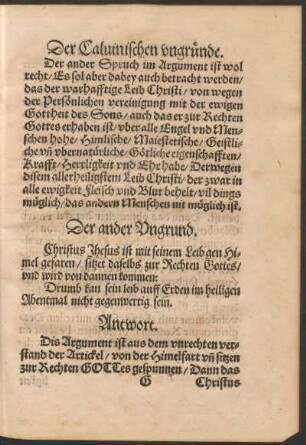 Der Caluinischen vngründe.
Der ander Spruch im Argument ist wol
recht / Es sol aber dabey auch betracht werden /
das der warhafftige Leib Christi / von wegen
der Persönlichen vereinigung mit der ewigen
Gottheit des Sons / auch das er zur Rechten
Gottes erhaben ist / vber alle Engel vnd Men-
schen hohe / Himlische / Maiestetische / Geistli-
che vñ vbernatürliche / Götliche eigenschafften /
Krafft / Herrligkeit vnd Ehr habe / Derwegen
disem allerheiligstem Leib Christi / der zwar in
alle ewigkeit Fleisch vnd Blut behelt / vil dings
müglich / das andern Menschen nit müglich ist.
Der ander Vngrund.
Christus Jhesus ist mit seinem Leib gen Hi-
mel gefaren / sitzet daselbs zur Rechten Gottes /
vnd wird von dannen kommen:
Drumb kan sein leib auff Erden im heiligen
Abentmal nicht gegenwertig sein.
Antwort.
Dis Argument ist aus dem vnrechten ver-
stand der Artickel / von der Himelfart vñ sitzen
zur Rechten GOTtes gespunnen / Dann das
G Christus